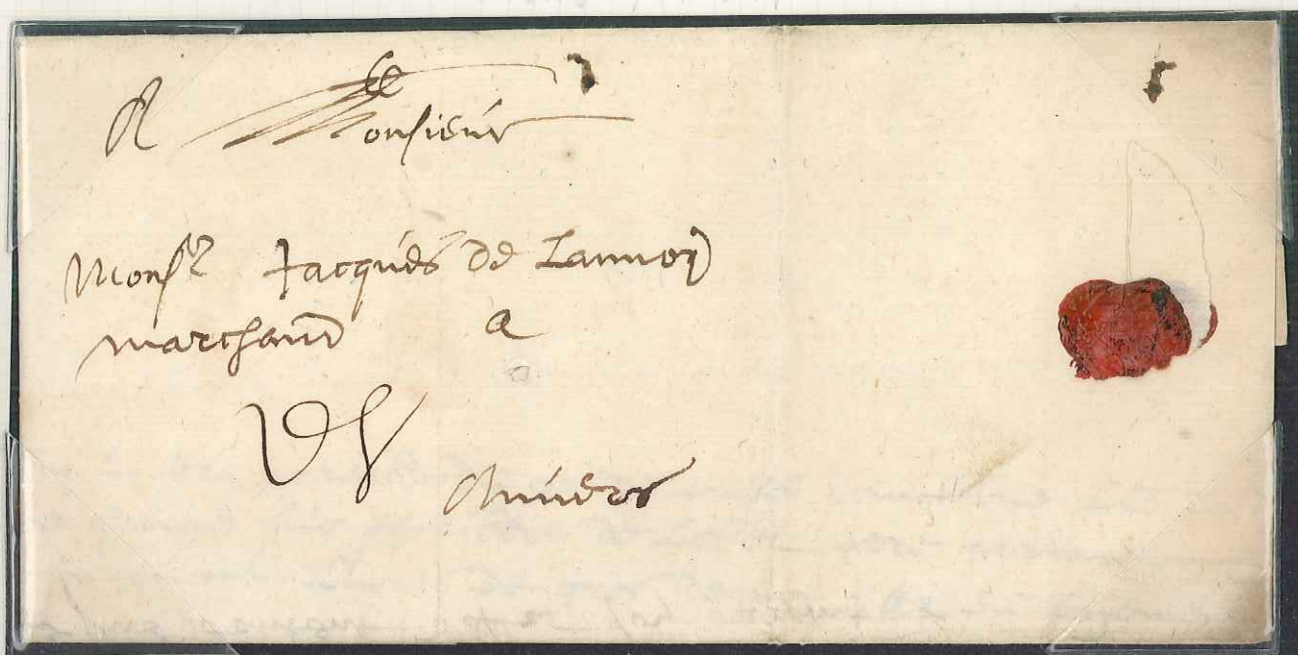 A Monsieur
Monsr Jacques de Lannoy
marchand a
Anvers